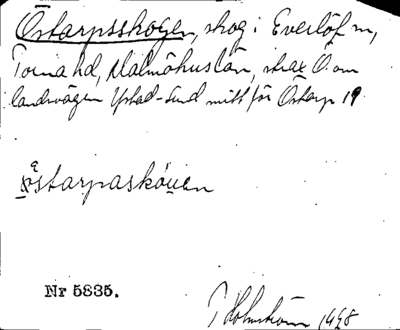 Östarpsskogen, skog i Everlöf sn,
Torna hd, Malmöhus län, strax Ö. om
landsvägen Ystad-Lund mitt för Östarp 19
östarpaskọuen
Nr 5835.
Holmström 1468